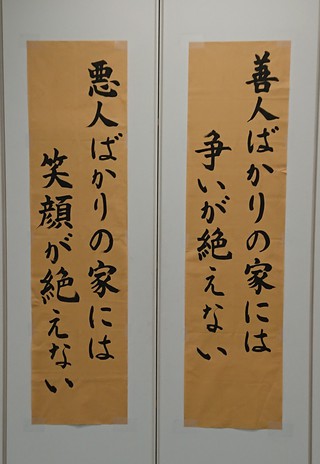 善人ばかりの家には
争いが絶えない
悪人ばかりの家には
笑顔が絶えない